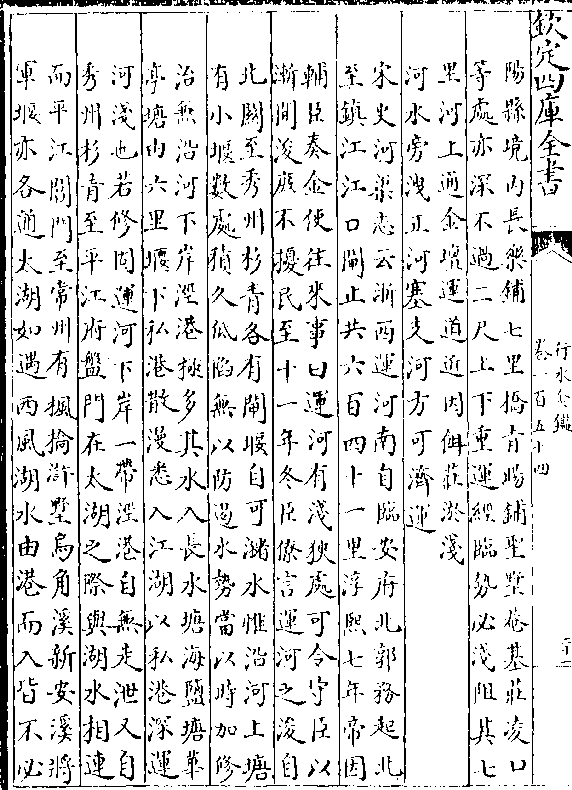 欽定四庫全書
行水金鑑
卷一百五十四
陽縣境内長樂鋪七里橋青暘鋪聖墅菴基莊凌口
等處亦深不過二尺上下重運經臨勢必淺阻其七
里河上通金壇運道近因侷莊淤淺
河水旁洩正河塞支河方可濟運
宋史河渠志云浙西運河南自臨安府北郭務起北
至鎮江江口閘止共六百四十一里淳熙七年帝因
輔臣奏金使往來事曰運河有淺狹處可令守臣以
漸開浚庶不擾民至十一年冬臣僚言運河之浚自
北關至秀州杉青各有閘堰自可瀦水惟沿河上塘
有小堰數處積久低陷無以防遏水勢當以時加修
治無沿河下岸涇港極多其水入長水塘海鹽塘華
亭塘由六里堰下私港散漫悉入江湖以私港深運
河淺也若修固運河下岸一帶涇港自無走泄又自
秀州杉青至平江府盤門在太湖之際與湖水相連
而平江閶門至常州有楓橋滸墅烏角溪新安溪將
軍堰亦各通太湖如遇西風湖水由港而入皆不必